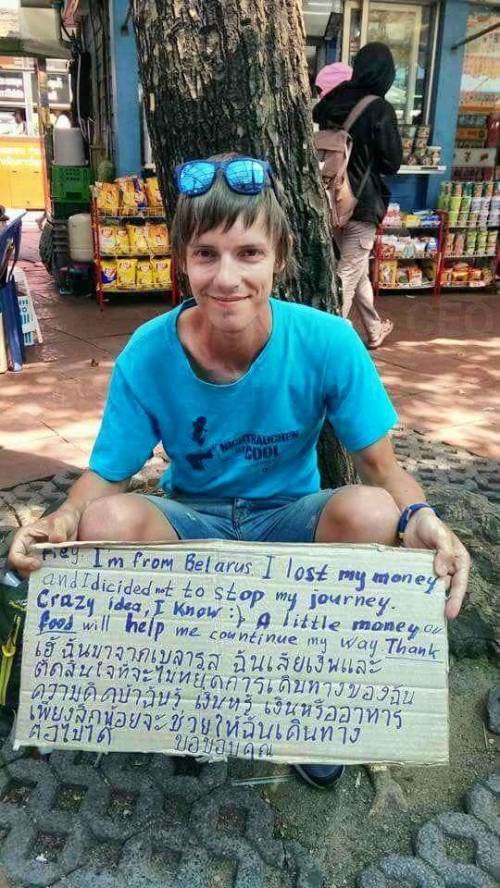 NICHTRAUCHEN
COOL
Hey I'm from Belarus. I lost my money
and I dicided not to stop my journey.
Crazy idea, I know :) A little money or
food will help me countinue my way Thank
เฮ้ ฉันมาจากเบลารุส ฉันเสียเงินและ
ตัดสินใจที่จะไม่หยุดการเดินทางของฉัน
ความคิดบ้าฉันรู้ เงินทรี เงินหรืออาหาร
เพียงเล็กน้อยจะช่วยให้ฉันเดินทาง
ต่อไปได้ ขอบคุณ